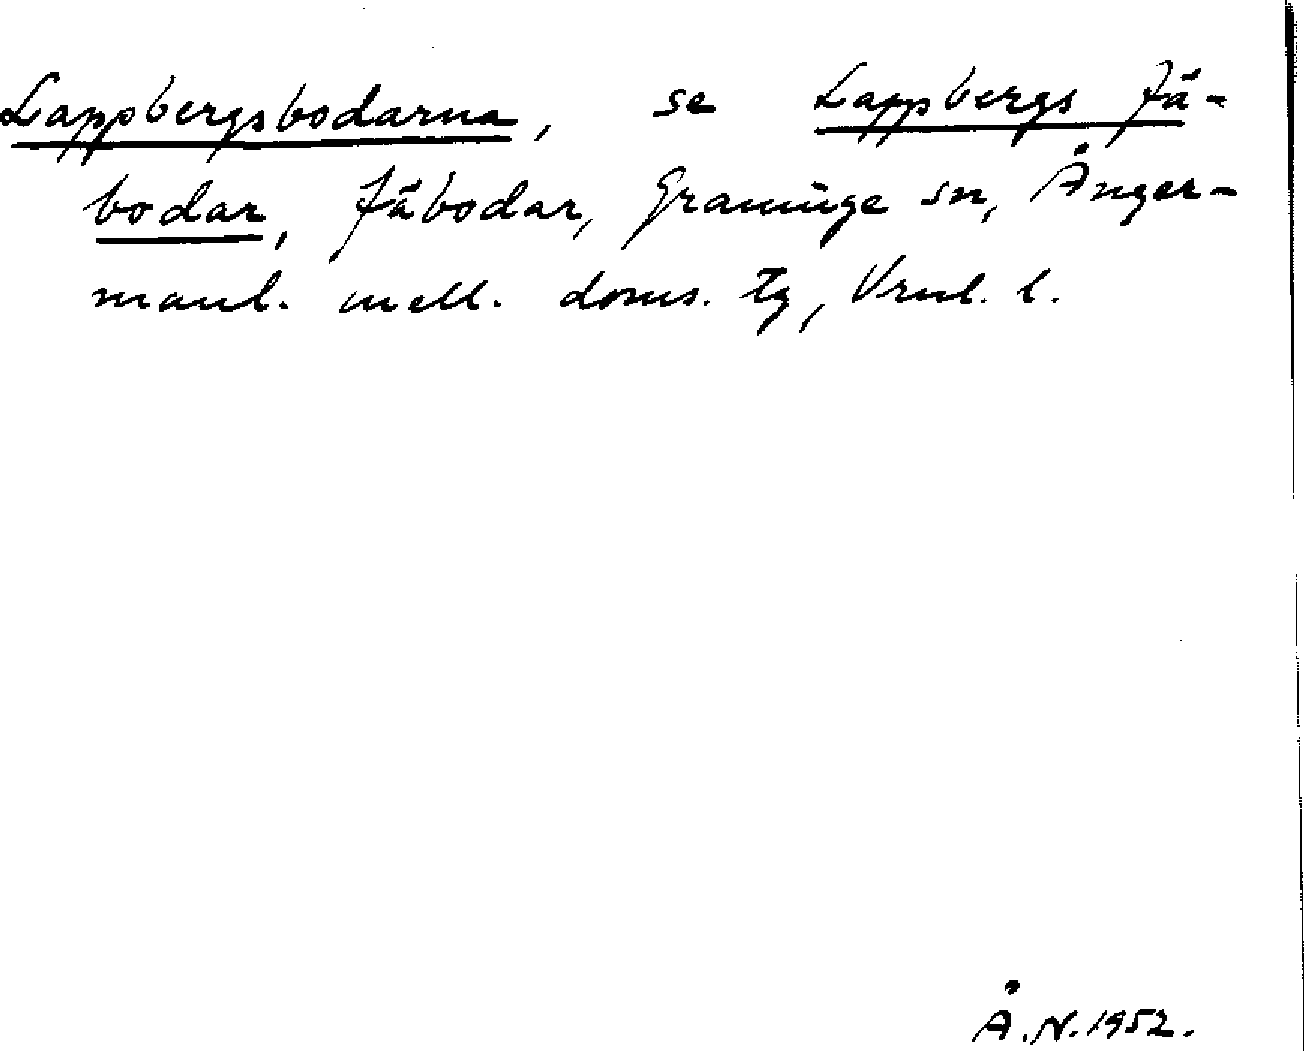 Lappbergsbodarna, se Lappbergs fä-
bodar, fäbodar, Graninge sn, Ånger-
manl. mell. doms. tg, Vrnl. l.
Å.N. 1952.